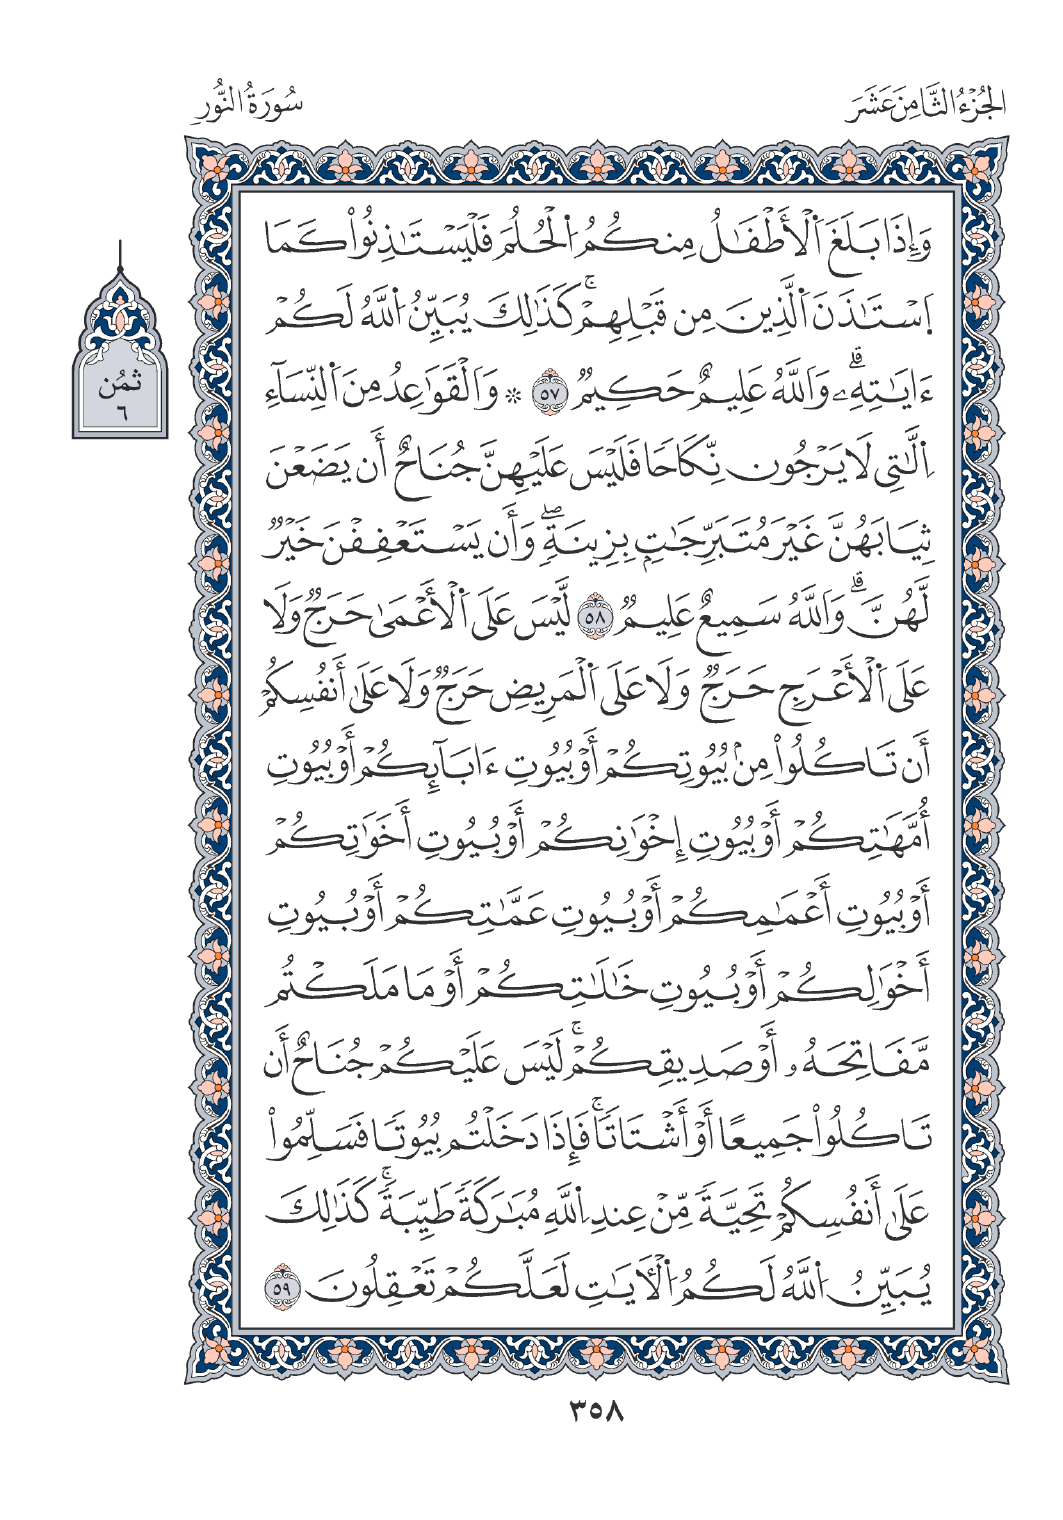 الجُزْءُ الثَّامِنَ عَشَرَ
سُورَةُ النُّورِ
وَإِذَا بَلَغَ اَ۬لْأَطْفَٰلُ مِنكُمُ اُ۬لْحُلُمَ فَلْيَسْتَٰذِنُواْ كَمَا
اَ۪سْتَٰذَنَ اَ۬لَّذِينَ مِن قَبْلِهِمْۚ كَذَٰلِكَ يُبَيِّنُ اُ۬للَّهُ لَكُمْ
ءَايَٰتِهِۦۗ وَاللَّهُ عَلِيمٌ حَكِيمٌ ٥٧ ۞ وَالْقَوَٰعِدُ مِنَ اَ۬لنِّسَآءِ
اِ۬لَّٰتِي لَا يَرْجُونَ نِكَاحاٗ فَلَيْسَ عَلَيْهِنَّ جُنَاحٌ أَن يَضَعْنَ
ثِيَابَهُنَّ غَيْرَ مُتَبَرِّجَٰتِۢ بِزِينَةٖۖ وَأَن يَسْتَعْفِفْنَ خَيْرٞ
لَّهُنَّۗ وَاللَّهُ سَمِيعٌ عَلِيمٞ ٥٨ لَّيْسَ عَلَى اَ۬لْأَعْمَىٰ حَرَجٞ وَلَا
عَلَى اَ۬لْأَعْرَجِ حَرَجٞ وَلَا عَلَى اَ۬لْمَرِيضِ حَرَجٞ وَلَا عَلَىٰ أَنفُسِكُمْ
أَن تَاكُلُواْ مِنۢ بُيُوتِكُمْ أَوْ بُيُوتِ ءَابَآئِكُمْ أَوْ بُيُوتِ
أُمَّهَٰتِكُمْ أَوْ بُيُوتِ إِخْوَٰنِكُمْ أَوْ بُيُوتِ أَخَوَٰتِكُمْ
أَوْ بُيُوتِ أَعْمَٰمِكُمْ أَوْ بُيُوتِ عَمَّٰتِكُمْ أَوْ بُيُوتِ
أَخْوَٰلِكُمْ أَوْ بُيُوتِ خَٰلَٰتِكُمْ أَوْ مَا مَلَكْتُم
مَّفَاتِحَهُۥ أَوْ صَدِيقِكُمْۚ لَيْسَ عَلَيْكُمْ جُنَاحٌ أَن
تَاكُلُواْ جَمِيعًا أَوْ أَشْتَاتاٗۚ فَإِذَا دَخَلْتُم بُيُوتاٗ فَسَلِّمُواْ
عَلَىٰ أَنفُسِكُمْ تَحِيَّةٗ مِّنْ عِندِ اِ۬للَّهِ مُبَٰرَكَةٗ طَيِّبَةٗۚ كَذَٰلِكَ
يُبَيِّنُ اُ۬للَّهُ لَكُمُ اُ۬لْأٓيَٰتِ لَعَلَّكُمْ تَعْقِلُونَ ٥٩
ثمُن
٦
٣٥٨